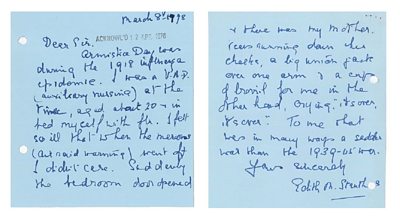 March 8th 1978
ACKNOWL'D 12 APR 1978
Dear Sir,
Armistice Day was
during the 1918 influenza
epidemic. I was a V.A.D.
(auxiliary nursing) at the
time, aged about 20 & in
bed myself with flu. I felt
so ill that when the maroons
(air raid warning) went off
I didn't care. Suddenly
the bedroom door opened
& there was my mother,
tears running down her
cheeks, a big union jack
over one arm & a cup
of bovril for me in the
other hand, crying, "it's over,
it's over". To me that
was in many ways a sadder
war than the 1939-45 war.
Yours sincerely
Edith M.